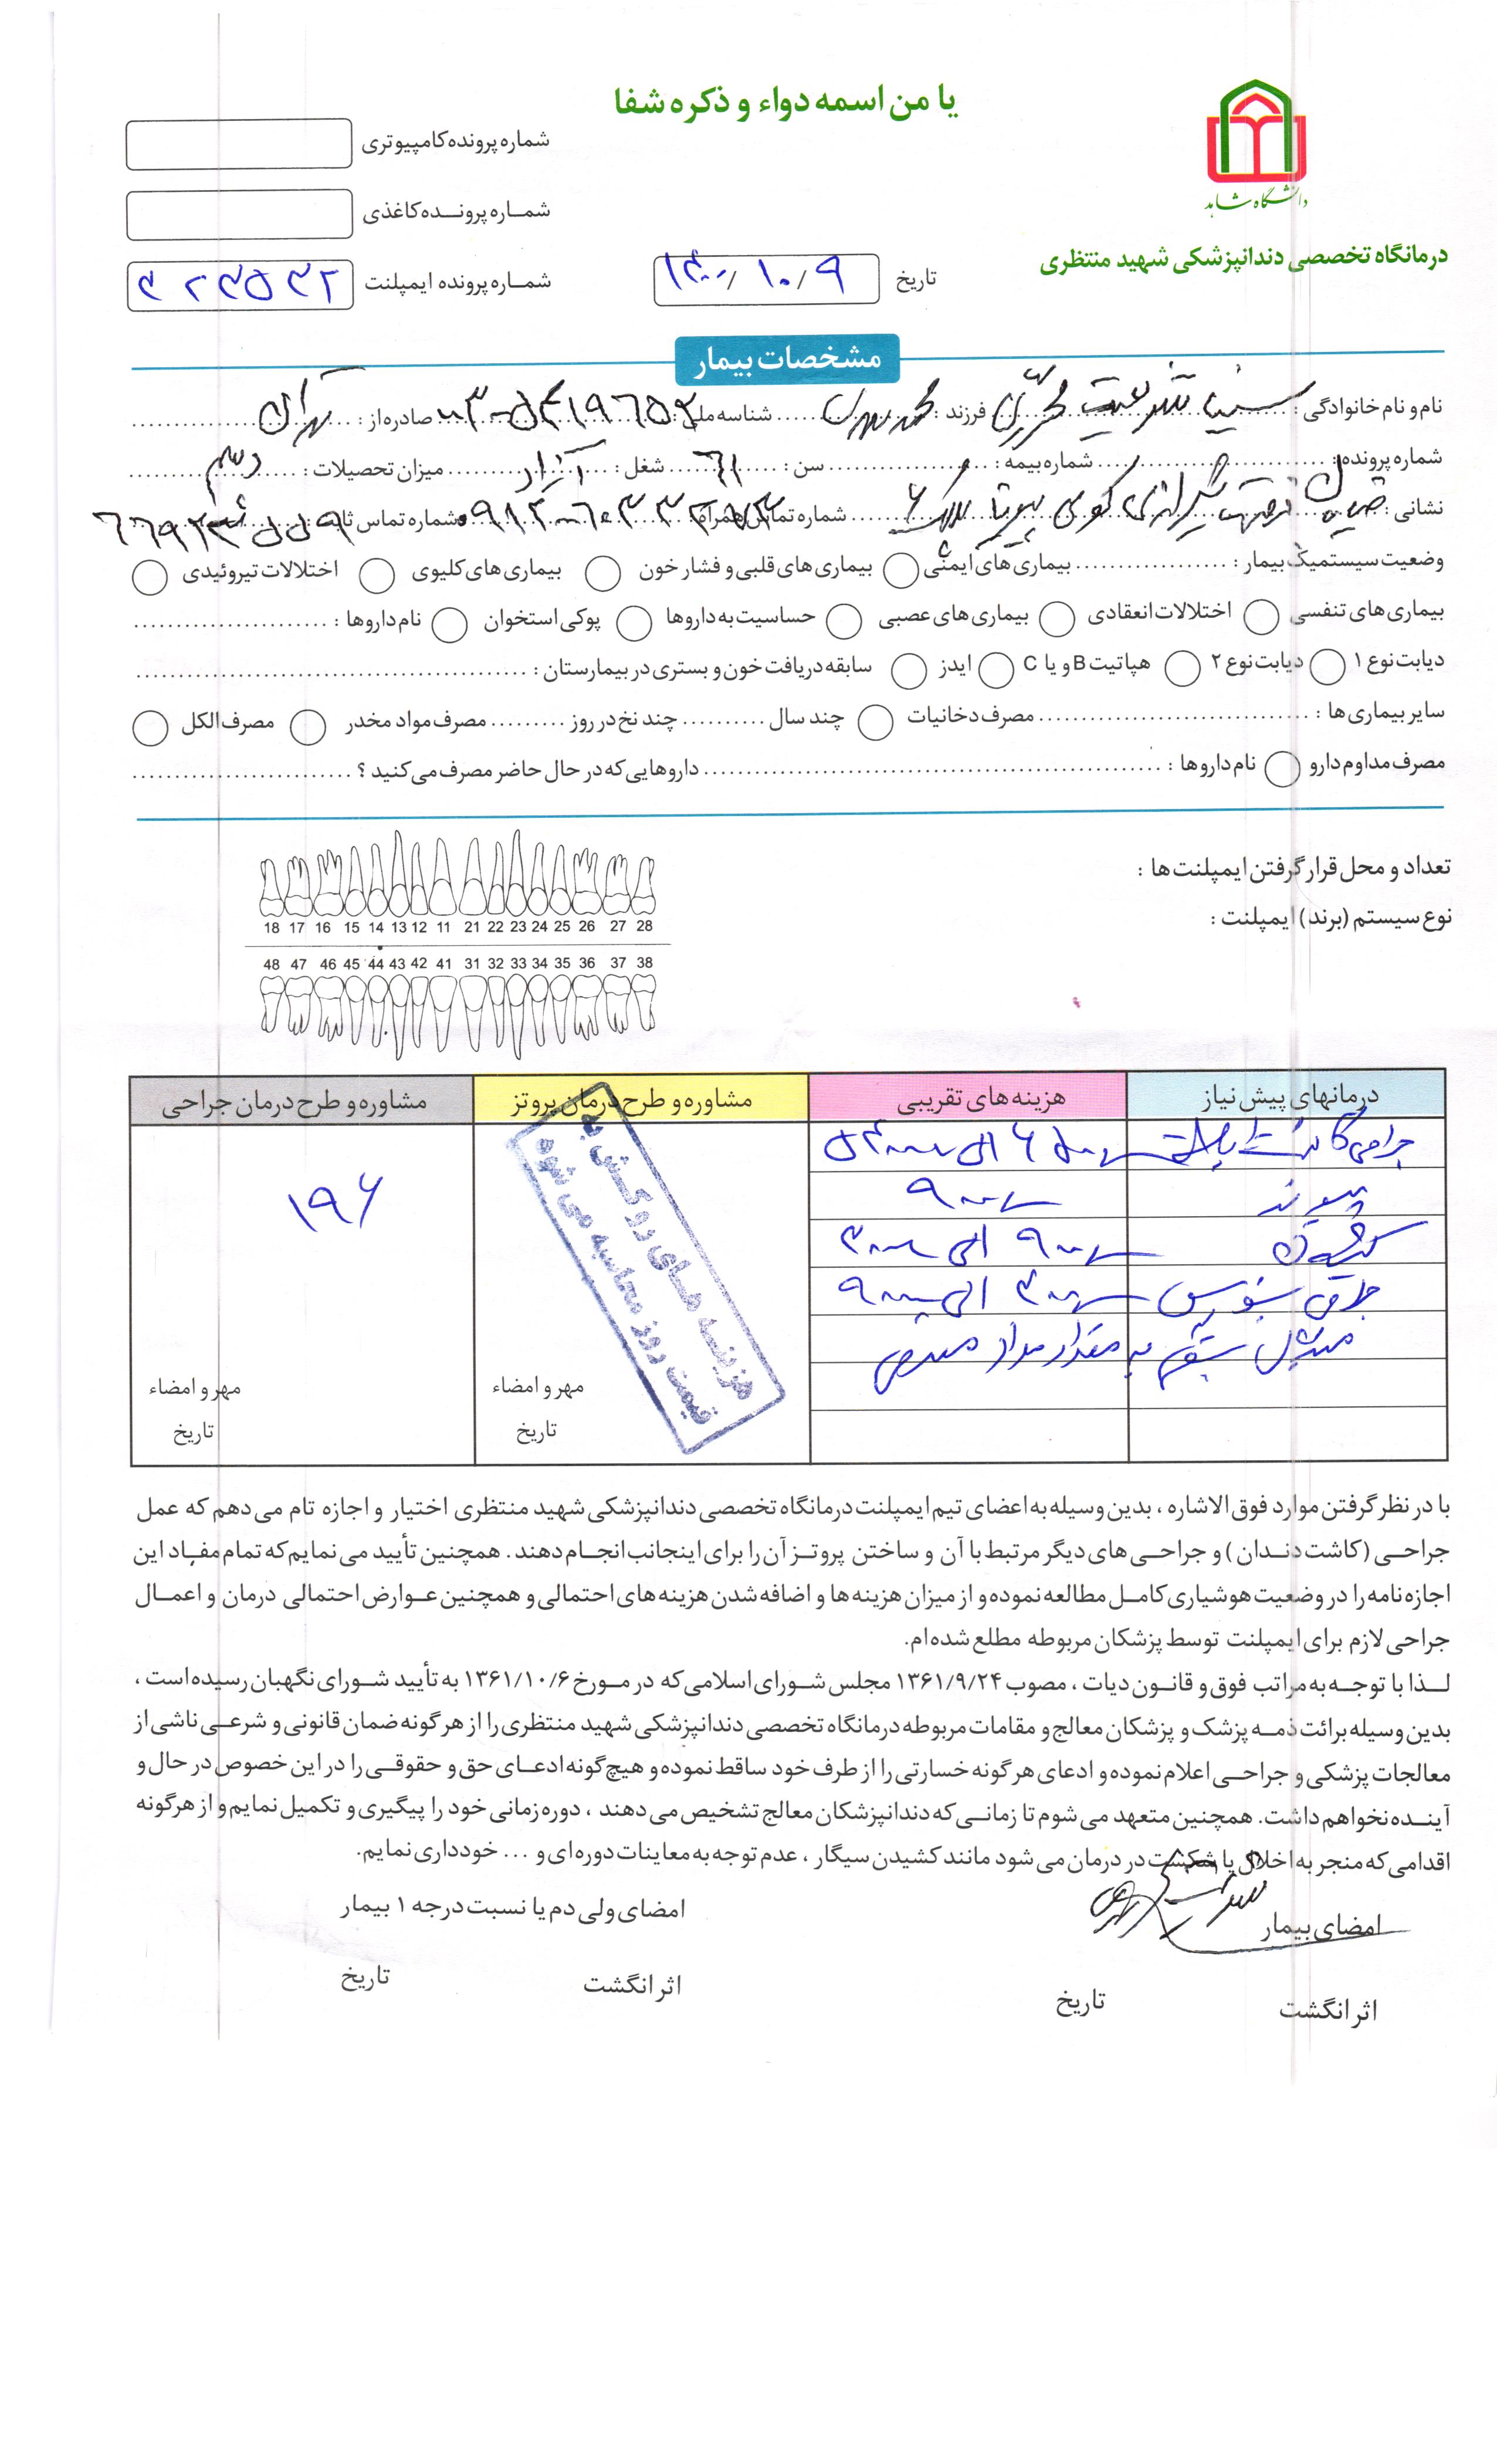 یا من اسمه دواء و ذکره شفا
دانشگاه شاهد
درمانگاه تخصصی دندانپزشکی شهید منتظری
شماره پرونده کامپیوتری
شماره پرونده کاغذی
شماره پرونده ایمپلنت
تاریخ ۱۴۰۰/۱۰/۹
مشخصات بیمار
نام و نام خانوادگی : فرزند : شناسه ملی : صادره از : تهران
شماره پرونده : شماره بیمه : سن : ۶۱ شغل : آزاد میزان تحصیلات :
نشانی : شماره تماس همراه : شماره تماس ثابت :
وضعیت سیستمیک بیمار : بیماری های ایمنی بیماری های قلبی و فشار خون بیماری های کلیوی اختلالات تیروئیدی
بیماری های تنفسی اختلالات انعقادی بیماری های عصبی حساسیت به داروها پوکی استخوان نام داروها :
دیابت نوع ۱ دیابت نوع ۲ هپاتیت B و یا C ایدز سابقه دریافت خون و بستری در بیمارستان :
سایر بیماری ها : مصرف دخانیات چند سال چند نخ در روز مصرف مواد مخدر مصرف الکل
مصرف مداوم دارو نام داروها : داروهایی که در حال حاضر مصرف می کنید ؟
تعداد و محل قرار گرفتن ایمپلنت ها :
نوع سیستم (برند) ایمپلنت :
18 17 16 15 14 13 12 11 21 22 23 24 25 26 27 28
48 47 46 45 44 43 42 41 31 32 33 34 35 36 37 38
درمانهای پیش نیاز هزینه های تقریبی مشاوره و طرح درمان پروتز مشاوره و طرح درمان جراحی
جراحی کاشت الی
پیوند
الی
جراحی سینوس الی
به مقدار مواد مصرفی
۱۹۶
هزینه های روکش به
قیمت روز محاسبه می شود
مهر و امضاء مهر و امضاء
تاریخ تاریخ
با در نظر گرفتن موارد فوق الاشاره ، بدین وسیله به اعضای تیم ایمپلنت درمانگاه تخصصی دندانپزشکی شهید منتظری اختیار و اجازه تام می دهم که عمل
جراحی (کاشت دندان) و جراحی های دیگر مرتبط با آن و ساختن پروتز آن را برای اینجانب انجام دهند . همچنین تأیید می نمایم که تمام مفاد این
اجازه نامه را در وضعیت هوشیاری کامل مطالعه نموده و از میزان هزینه ها و اضافه شدن هزینه های احتمالی و همچنین عوارض احتمالی درمان و اعمال
جراحی لازم برای ایمپلنت توسط پزشکان مربوطه مطلع شده ام.
لذا با توجه به مراتب فوق و قانون دیات ، مصوب ۱۳۶۱/۹/۲۴ مجلس شورای اسلامی که در مورخ ۱۳۶۱/۱۰/۶ به تأیید شورای نگهبان رسیده است ،
بدین وسیله برائت ذمه پزشک و پزشکان معالج و مقامات مربوطه درمانگاه تخصصی دندانپزشکی شهید منتظری را از هرگونه ضمان قانونی و شرعی ناشی از
معالجات پزشکی و جراحی اعلام نموده و ادعای هرگونه خسارتی را از طرف خود ساقط نموده و هیچ گونه ادعای حق و حقوقی را در این خصوص در حال و
آینده نخواهم داشت. همچنین متعهد می شوم تا زمانی که دندانپزشکان معالج تشخیص می دهند ، دوره زمانی خود را پیگیری و تکمیل نمایم و از هرگونه
اقدامی که منجر به اخلال یا شکست در درمان می شود مانند کشیدن سیگار ، عدم توجه به معاینات دوره ای و ... خودداری نمایم.
امضای بیمار امضای ولی دم یا نسبت درجه ۱ بیمار
اثر انگشت تاریخ اثر انگشت تاریخ